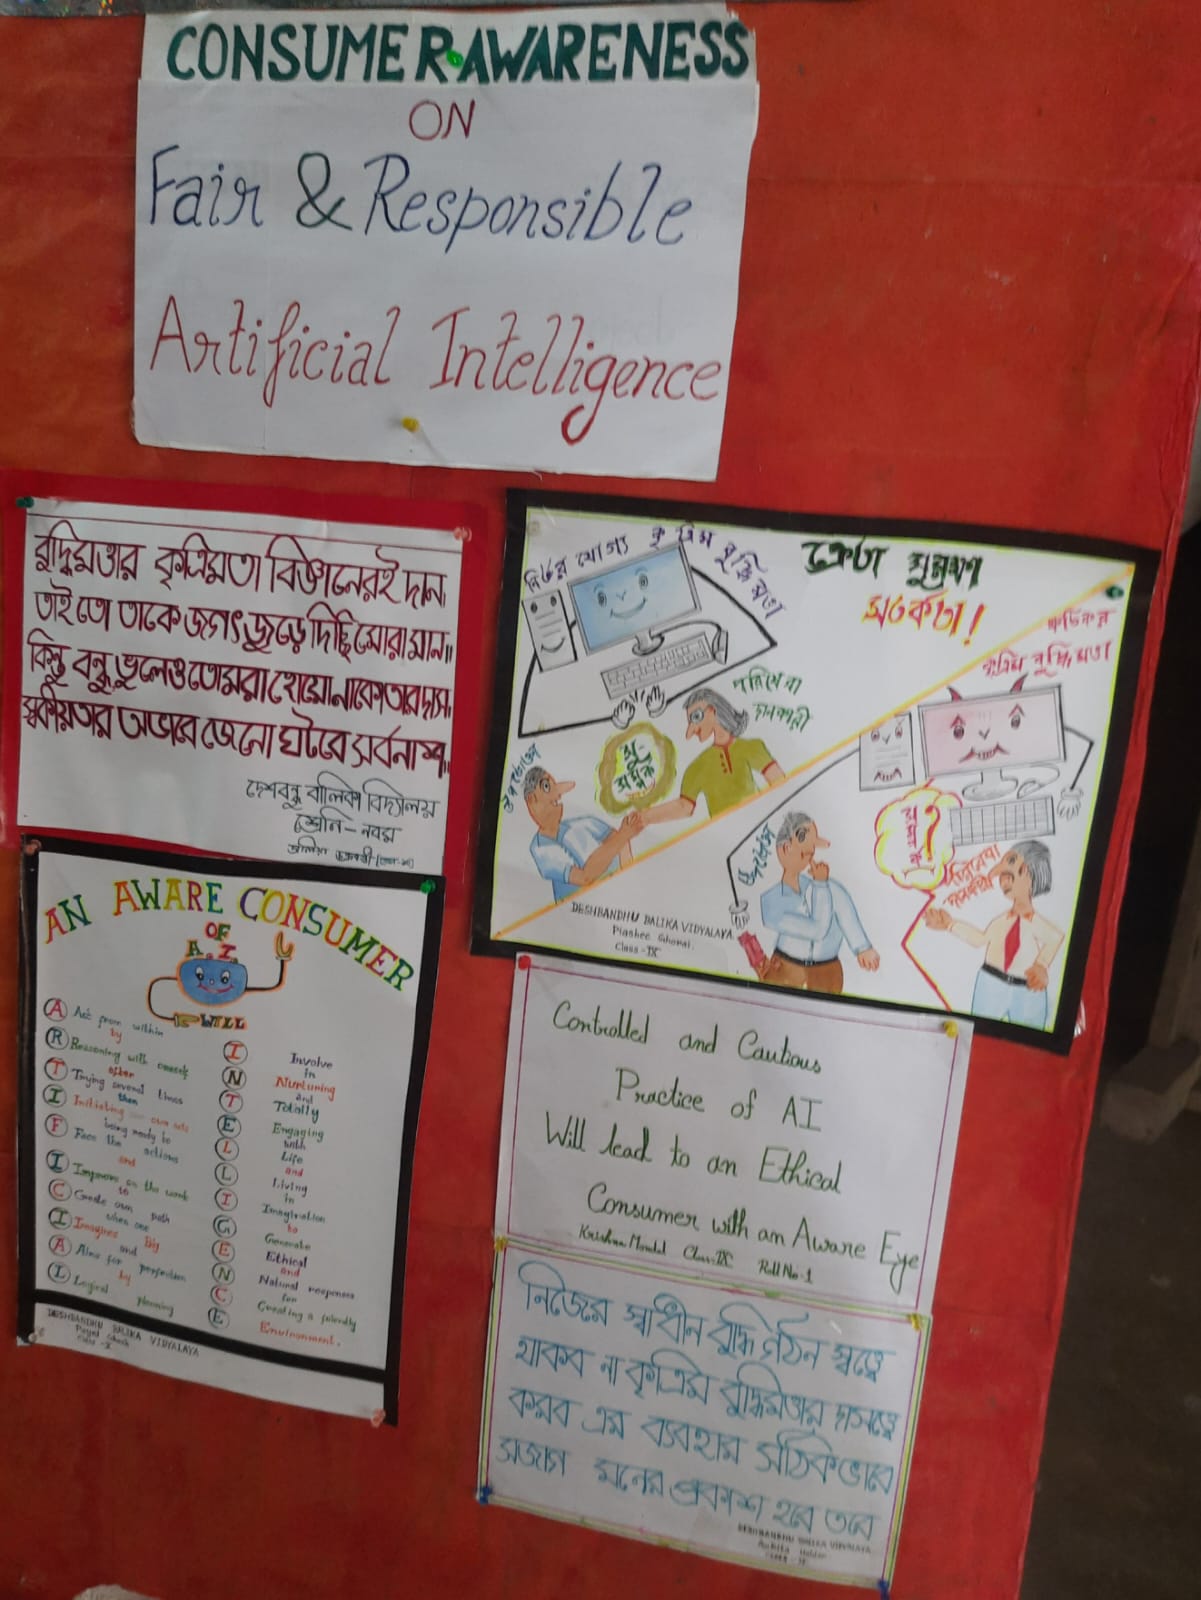 CONSUMER AWARENESS
ON
Fair & Responsible
Artificial Intelligence
বুদ্ধিমত্তার কৃত্রিমতা বিজ্ঞানেরই দান,
তাই তো তাকে জগৎ জুড়ে দিচ্ছি মোরা মান॥
কিন্তু বন্ধু ভুলেও তোমরা হোয়ো নাকো তার দাস,
স্বকীয়তার অভাবে জেনো ঘটবে সর্বনাশ॥
দেশবন্ধু বালিকা বিদ্যালয়
শ্রেনি - নবম
নির্ভর যোগ্য কৃত্রিম বুদ্ধিমত্তা
ক্রেতা সুরক্ষা
সতর্কতা!
ক্ষতিকর
কৃত্রিম বুদ্ধিমত্তা
পরিষেবা
উপভোক্তা
উপভোক্তা
পরিষেবা
DESHBANDHU BALIKA VIDYALAYA
Class - IX
AN AWARE CONSUMER
OF
A.I
WILL
A Act from within
by
R Reasoning with
after
T Trying several times
then
I Initiating own
being ready to
F Face the actions
and
I Improves on the work
to
C Create own path
when one
I Imagines Big
and
A Aims for perfection
by
L Logical planning
I Involve
in
N Nurturing
and
T Totally
E Engaging
with
L Life
and
L Living
in
I Imagination
to
G Generate
E Ethical
and
N Natural responses
for
C Creating a friendly
E Environment.
DESHBANDHU BALIKA VIDYALAYA
Payel Ghosh
Class - X
Controlled and Cautious
Practice of AI
Will lead to an Ethical
Consumer with an Aware Eye
Krishna Mondal Class-IX Roll No-1
নিজের স্বাধীন বুদ্ধি গঠন স্বত্ত্বে
থাকব না কৃত্রিম বুদ্ধিমত্তার দাসত্বে
করব এর ব্যবহার সঠিকভাবে
সজাগ মনের প্রকাশ হবে তবে
DESHBANDHU BALIKA VIDYALAYA
Ankita Halder
CLASS - IX